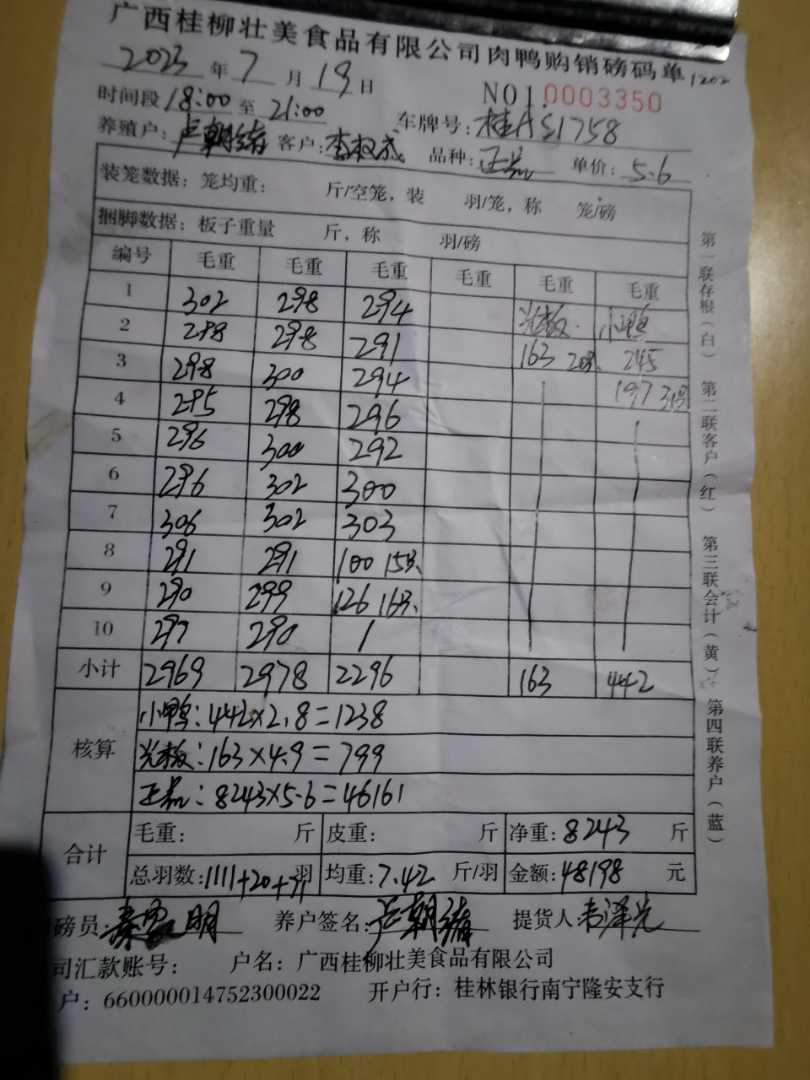 广西桂柳壮美食品有限公司肉鸭购销磅码单 1202
2023 年 7 月 19 日 NO1.0003350
时间段 18:00 至 21:00 车牌号: 桂AS1758
养殖户: 卢朝绪 客户: 李权成 品种: 正品 单价: 5.6
装笼数据: 笼均重: 斤/空笼, 装 羽/笼, 称 笼/磅
捆脚数据: 板子重量 斤, 称 羽/磅
编号 毛重 毛重 毛重 毛重 毛重 毛重
1 302 298 294 光板 小鸭
2 288 298 291 163 20只 245
3 298 300 294 197 31只
4 285 298 296
5 296 300 292
6 286 302 300
7 306 302 303
8 291 291 100 15只
9 290 299 126 16只
10 297 290 /
小计 2969 2978 2296 163 442
核算
小鸭: 442×2.8=1238
光板: 163×4.9=799
正品: 8243×5.6=46161
合计
毛重: 斤 皮重: 斤 净重: 8243 斤
总羽数: 1111+20+ 羽 均重: 7.42 斤/羽 金额: 48198 元
磅员: 秦 明 养户签名: 卢朝绪 提货人 韦泽光
司汇款账号: 户名: 广西桂柳壮美食品有限公司
户: 660000014752300022 开户行: 桂林银行南宁隆安支行
第一联存根(白) 第二联客户(红) 第三联会计(黄) 第四联养户(蓝)